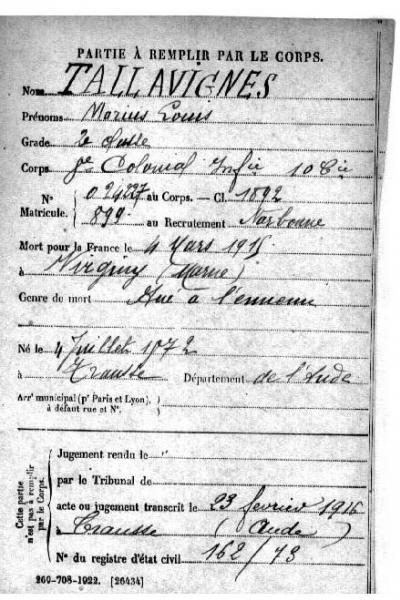 PARTIE À REMPLIR PAR LE CORPS.
Nom TALLAVIGNES
Prénoms Marius Louis
Grade 2e classe
Corps Colonial Infie 10 Cie
N° 024227 au Corps. — Cl. 1892
Matricule. 899 au Recrutement Narbonne
Mort pour la France le 4 Mars 1915
à Virginy (Marne)
Genre de mort Tué à l'ennemi
Né le 4 Juillet 1872
à Trausse Département de l'Aude
Arrt municipal (pr Paris et Lyon),
à défaut rue et N°.
Cette partie
n'est pas à remplir
par le Corps.
Jugement rendu le
par le Tribunal de
acte ou jugement transcrit le 23 février 1916
à Trausse (Aude)
N° du registre d'état civil 162/73
269-708-1922. [26434]